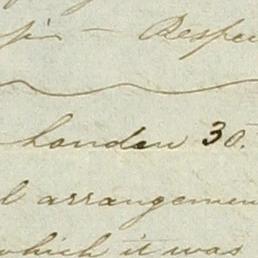 — Respec
London 30.
l arrangemen
which it was